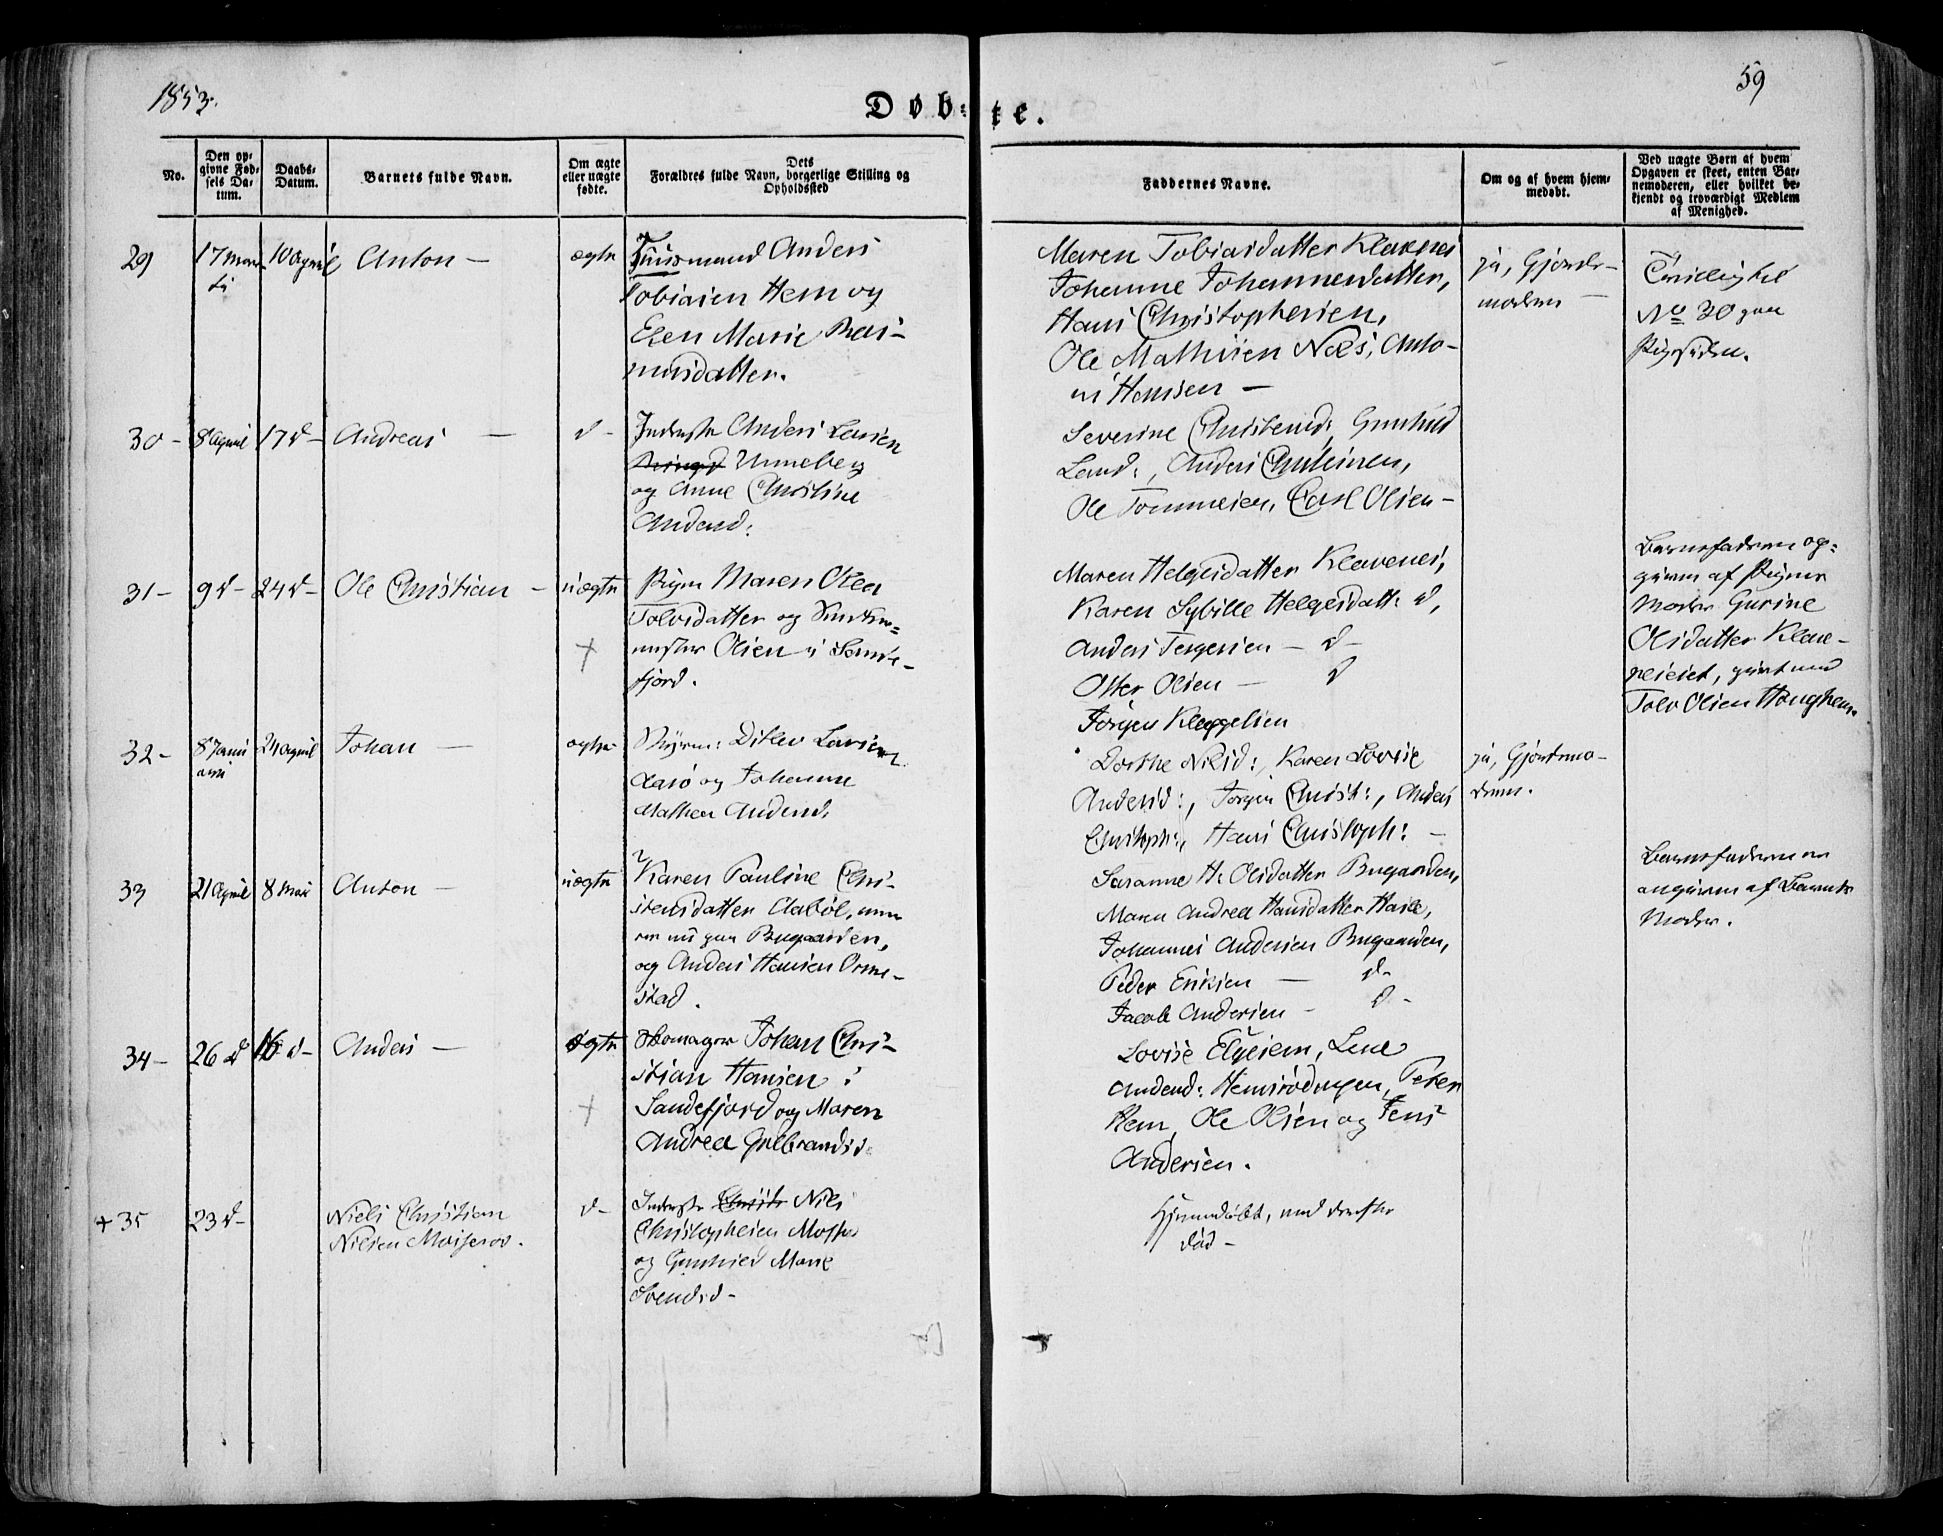 1853.
59
Døb=te.
No.
Den op=
givne Fød=
sels Da=
tum.
Daabs=
Datum.
Barnets fulde Navn.
Om ægte
eller uægte
fødte.
Dets
Forældres fulde Navn, borgerlige Stilling og
Opholdssted
Faddernes Navne.
Om og af hvem hjem=
medøbt.
Ved uægte Børn af hvem
Opgaven er skeet, enten Bar=
nemoderen, eller hvilket be=
kjendt og troværdigt Medlem
af Menighed.
29
17 Mar
ti
10 April
Anton —
ægte
Huusmand Anders
Tobiasen Hem og
Elen Marie Ras-
musdatter.
Maren Tobiasdatter Klavenes
Johanne Johannesdatter,
Hans Christophersen,
Ole Mathisen Næs, Anto-
ni Hansen —
ja, Gjorde-
moderen —
Tvilling til
No 30 paa
Pigesiden.
30 -
8 April
17 d -
Andreas —
d -
Inderste Anders Larsen
Unneberg
og Anne Christine
Andersd:
Severine Christensd: Gunhild
Larsd:, Anders Christensen,
Ole Tommesen, Carl Olsen -
31 -
9 d -
24 d -
Ole Christian -
uægte
+
Pigen Maren Olea
Tolvsdatter og
Olsen i Sande-
fjord.
Maren Helgesdatter Klavenes,
Karen Sybille Helgesdatt: d,
Anders Jørgensen - d -
Otter Olsen — d
Jørgen Kleppelsen
Barnefaderen op=
given af Pigens
Moder Gurine
Olsdatter Klave-
neseiet, givt med
Tolv Olsen Haughem.
32 -
8 Janu
ari
24 April
Johan —
ægte
Styrm: Ditlev Larsen
og Johanne
Mathea Andersd.
Dorthe Nilsd:, Karen Lovise
Andersd:, Jørgen Christ:, Anders
Christoph:, Hans Christoph: -
ja, Gjordemo-
deren.
33
21 April
8 Mai
Anton —
uægte
Karen Pauline Chri-
stensdatter Clabøl, men
nu paa Bugaarden,
og Anders Hansen Orme-
stad.
Susanne H. Olsdatter Bugaarden,
Maren Andrea Hansdatter Hasle,
Johannes Andersen Bugaarden,
Peder Eriksen — d -
Jacob Andersen - d -
Barnefaderen er
angiven af Barnets
Moder.
34 -
26 d
16 d -
Anders —
ægte
+
Skomager Johan Chri-
stian Hansen i
Sandefjord og Maren
Andrea Gulbrandsd:
Lovise Elgesem, Lene
Andersd: Hemsrødungen, Peter
Hem, Ole Olsen og Jens
Andersen.
+ 35
23 d -
Niels Christian
Nilsen
d -
Inderste Christ: Nils
Christophersen
og Gunhild Marie
Svendsd -
Hjemmedøbt, men derefter
død -